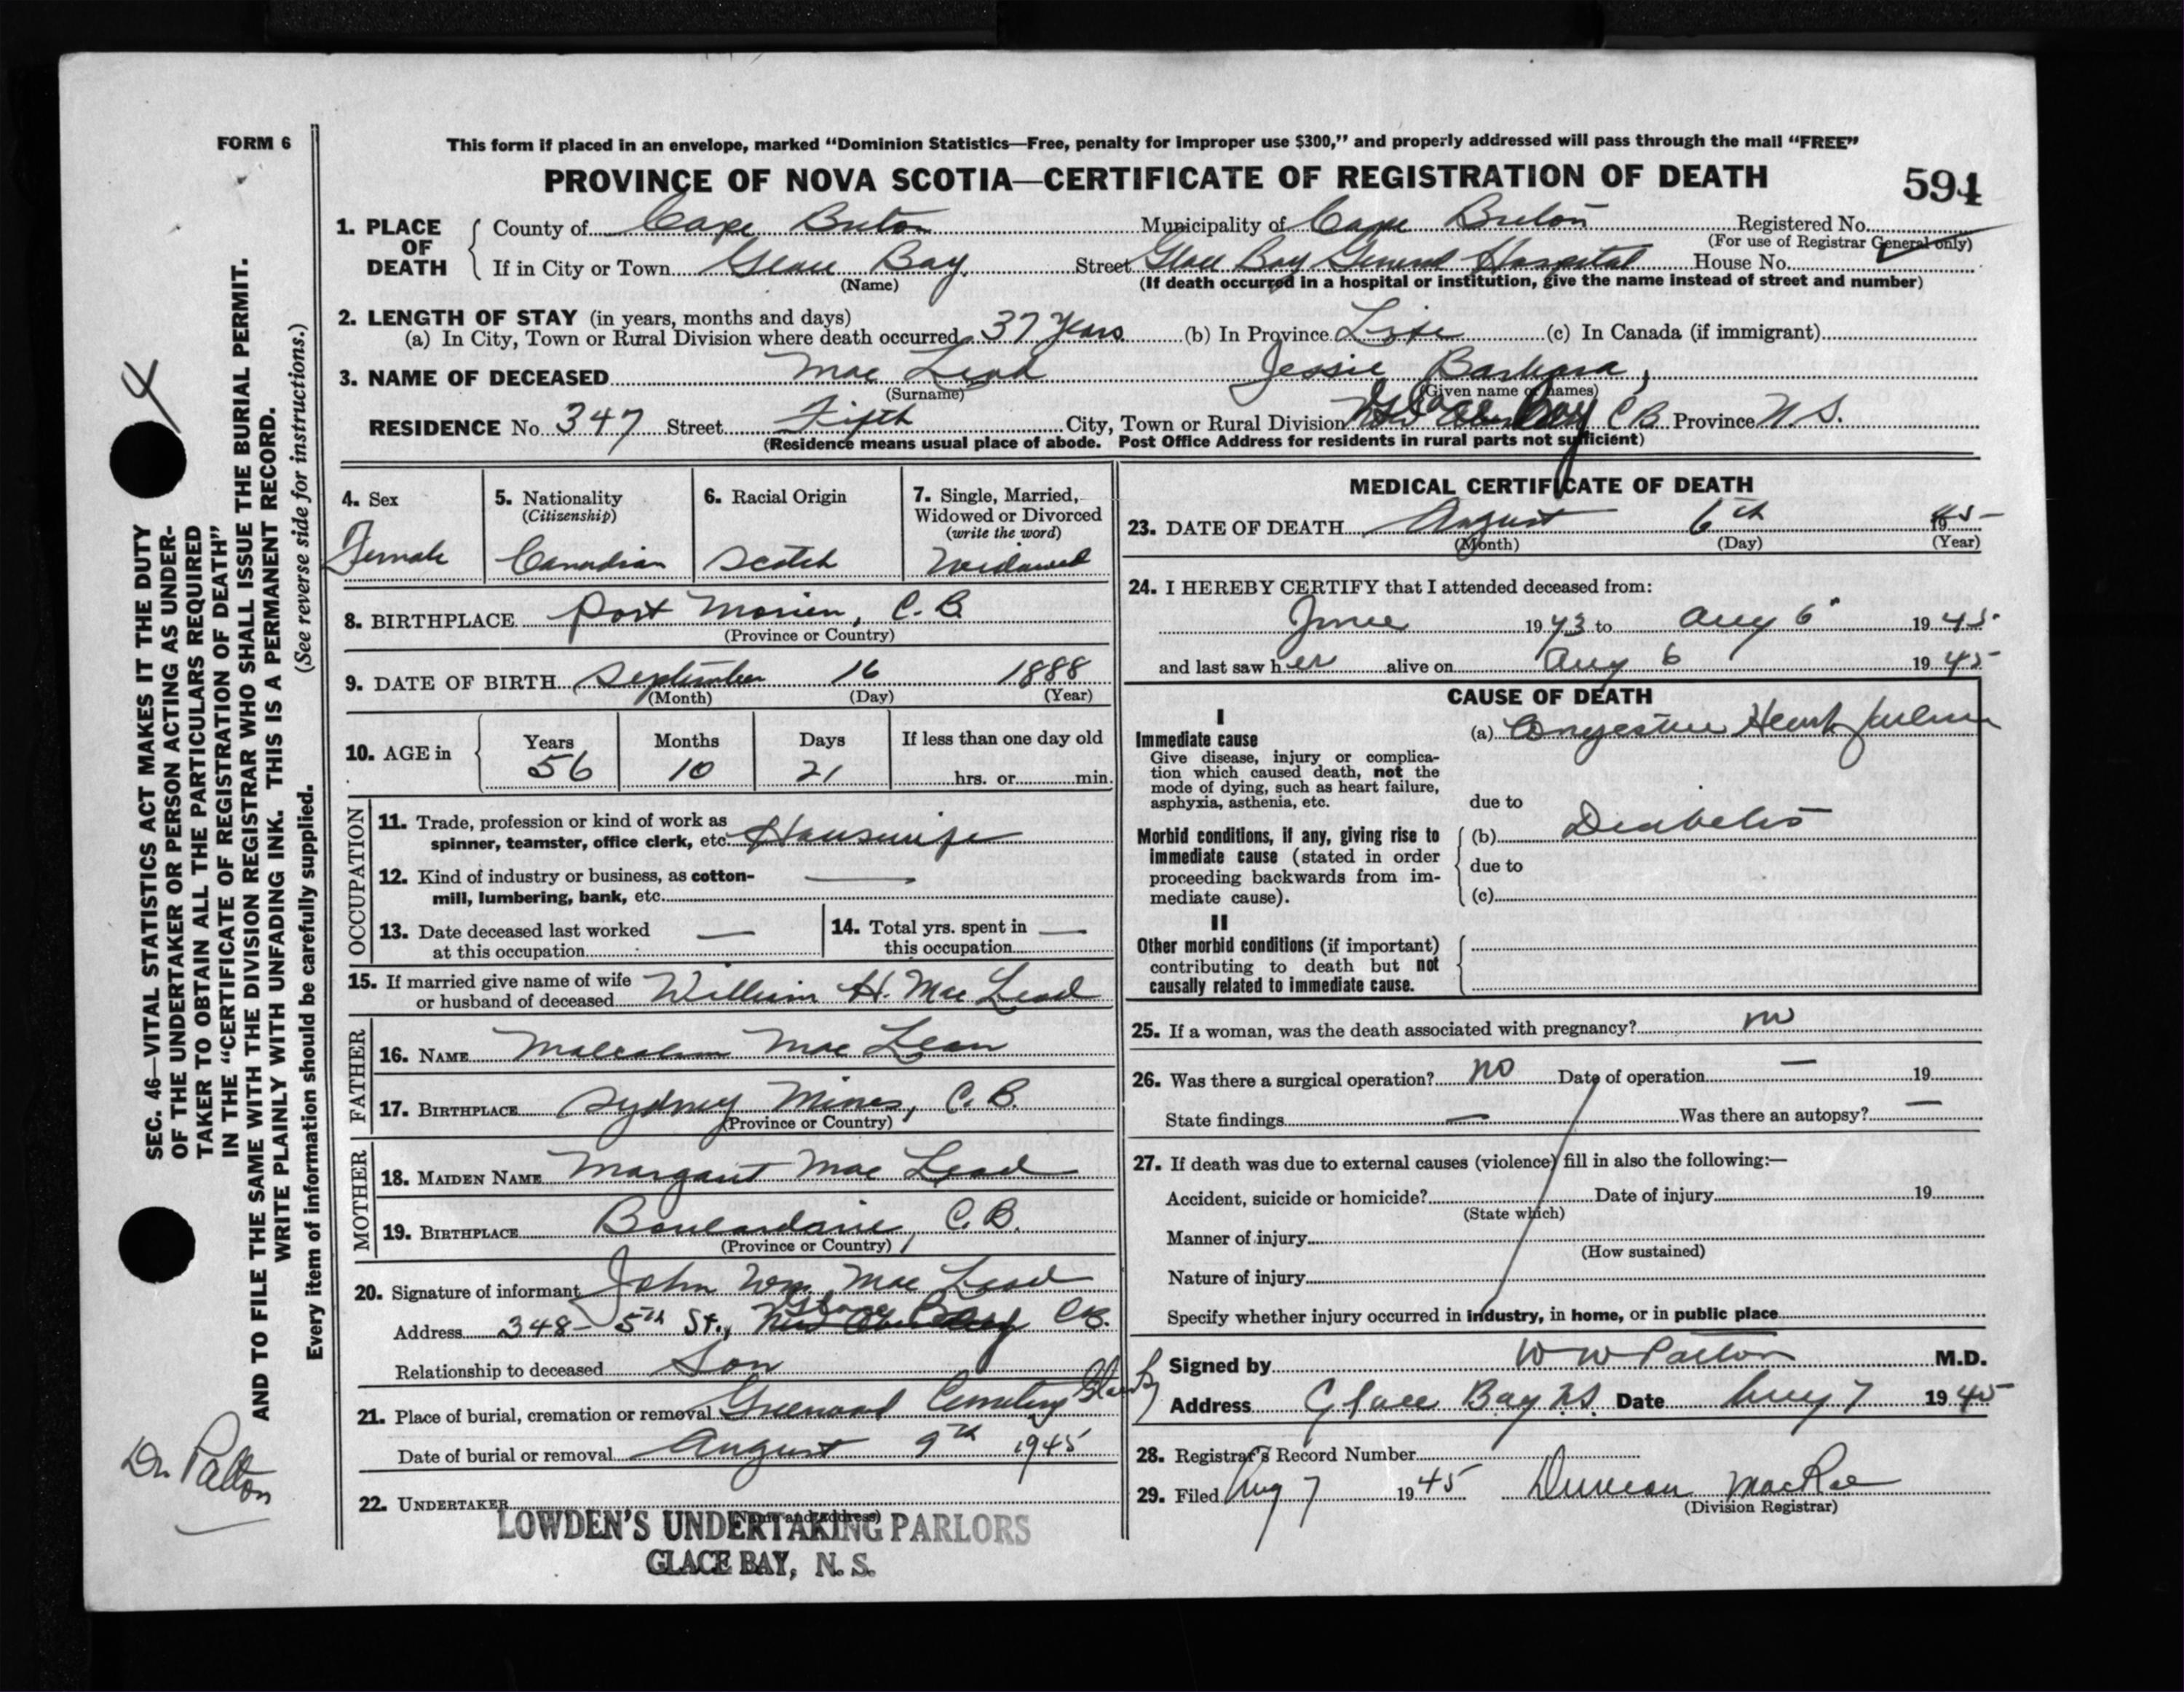 FORM 6
This form if placed in an envelope, marked “Dominion Statistics—Free, penalty for improper use $300,” and properly addressed will pass through the mail “FREE”
PROVINCE OF NOVA SCOTIA—CERTIFICATE OF REGISTRATION OF DEATH
594
1. PLACE OF DEATH
County of Cape Breton Municipality of Cape Breton Registered No.
(For use of Registrar General only)
If in City or Town Glace Bay, Street Glace Bay General Hospital House No.
(Name) (If death occurred in a hospital or institution, give the name instead of street and number)
2. LENGTH OF STAY (in years, months and days)
(a) In City, Town or Rural Division where death occurred 37 Years (b) In Province Life (c) In Canada (if immigrant)
3. NAME OF DECEASED Mac Leod Jessie Barbara,
(Surname) (Given name or names)
RESIDENCE No. 347 Street Fifth City, Town or Rural Division Glace Bay C B Province N. S.
(Residence means usual place of abode. Post Office Address for residents in rural parts not sufficient)
4. Sex
Female
5. Nationality
(Citizenship)
Canadian
6. Racial Origin
Scotch
7. Single, Married,
Widowed or Divorced
(write the word)
Widowed
8. BIRTHPLACE Port Morien, C. B.
(Province or Country)
9. DATE OF BIRTH September 16 1888
(Month) (Day) (Year)
10. AGE in
Years Months Days If less than one day old
56 10 21 hrs. or min.
OCCUPATION
11. Trade, profession or kind of work as
spinner, teamster, office clerk, etc. Housewife
12. Kind of industry or business, as cotton-
mill, lumbering, bank, etc. —
13. Date deceased last worked
at this occupation —
14. Total yrs. spent in
this occupation —
15. If married give name of wife
or husband of deceased William H. Mac Leod
FATHER
16. NAME Malcolm Mac Lean
17. BIRTHPLACE Sydney Mines, C. B.
(Province or Country)
MOTHER
18. MAIDEN NAME Margaret Mac Leod
19. BIRTHPLACE Boulardarie, C. B.
(Province or Country)
20. Signature of informant John Wm. Mac Leod
Address 348 - 5th St., Glace Bay CB.
Relationship to deceased Son
21. Place of burial, cremation or removal Greenwood Cemetery
Date of burial or removal August 9th 1945
22. UNDERTAKER
(Name and address)
LOWDEN'S UNDERTAKING PARLORS
GLACE BAY, N. S.
MEDICAL CERTIFICATE OF DEATH
23. DATE OF DEATH August 6th 1945
(Month) (Day) (Year)
24. I HEREBY CERTIFY that I attended deceased from:
June 1943 to Aug 6 1945
and last saw her alive on Aug 6 1945
CAUSE OF DEATH
I
Immediate cause
Give disease, injury or complica-
tion which caused death, not the
mode of dying, such as heart failure,
asphyxia, asthenia, etc.
(a) Congestive Heart failure
due to
Morbid conditions, if any, giving rise to
immediate cause (stated in order
proceeding backwards from im-
mediate cause).
(b) Diabetes
due to
(c)
II
Other morbid conditions (if important)
contributing to death but not
causally related to immediate cause.
25. If a woman, was the death associated with pregnancy? no
26. Was there a surgical operation? no Date of operation — 19
State findings — Was there an autopsy? —
27. If death was due to external causes (violence) fill in also the following:—
Accident, suicide or homicide? Date of injury 19
(State which)
Manner of injury
(How sustained)
Nature of injury
Specify whether injury occurred in industry, in home, or in public place
Signed by W W Patton M.D.
Address Glace Bay NS. Date Aug 7 1945
28. Registrar's Record Number
29. Filed Aug 7 1945 Duncan MacRae
(Division Registrar)
SEC. 46—VITAL STATISTICS ACT MAKES IT THE DUTY
OF THE UNDERTAKER OR PERSON ACTING AS UNDER-
TAKER TO OBTAIN ALL THE PARTICULARS REQUIRED
IN THE “CERTIFICATE OF REGISTRATION OF DEATH”
AND TO FILE THE SAME WITH THE DIVISION REGISTRAR WHO SHALL ISSUE THE BURIAL PERMIT.
WRITE PLAINLY WITH UNFADING INK. THIS IS A PERMANENT RECORD.
Every item of information should be carefully supplied. (See reverse side for instructions.)
4
Dr. Patton